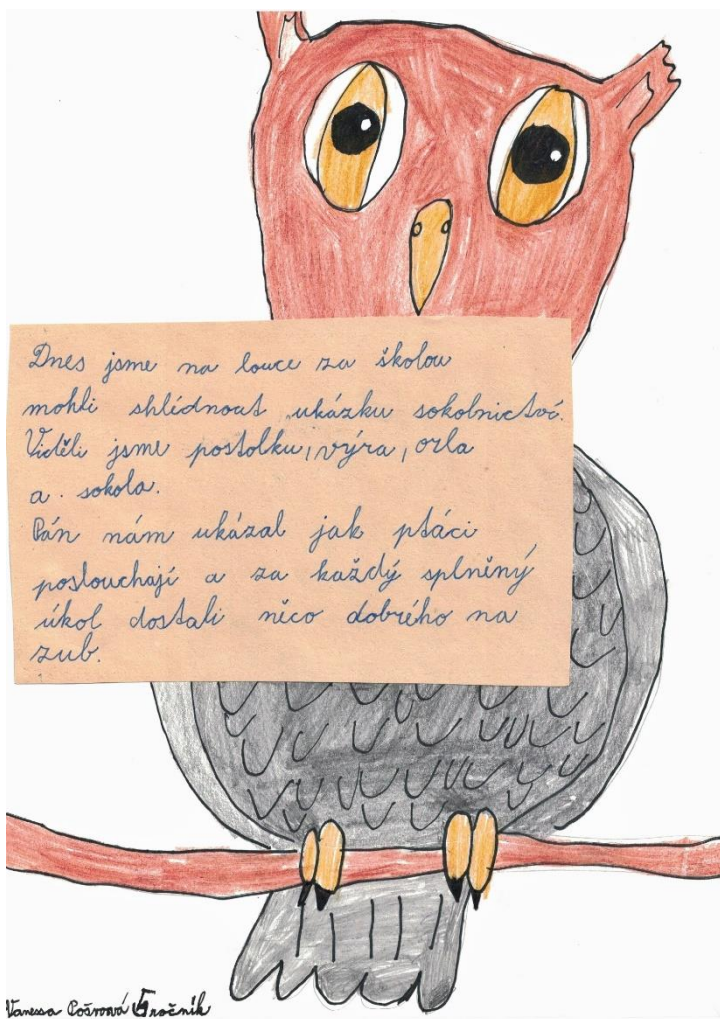 Dnes jsme na louce za školou
mohli shlédnout ukázku sokolnictví.
Viděli jsme poštolku, výra, orla
a. sokola.
Pán nám ukázal jak ptáci
poslouchají a za každý splněný
úkol dostali něco dobrého na
zub.
Vanessa ročník